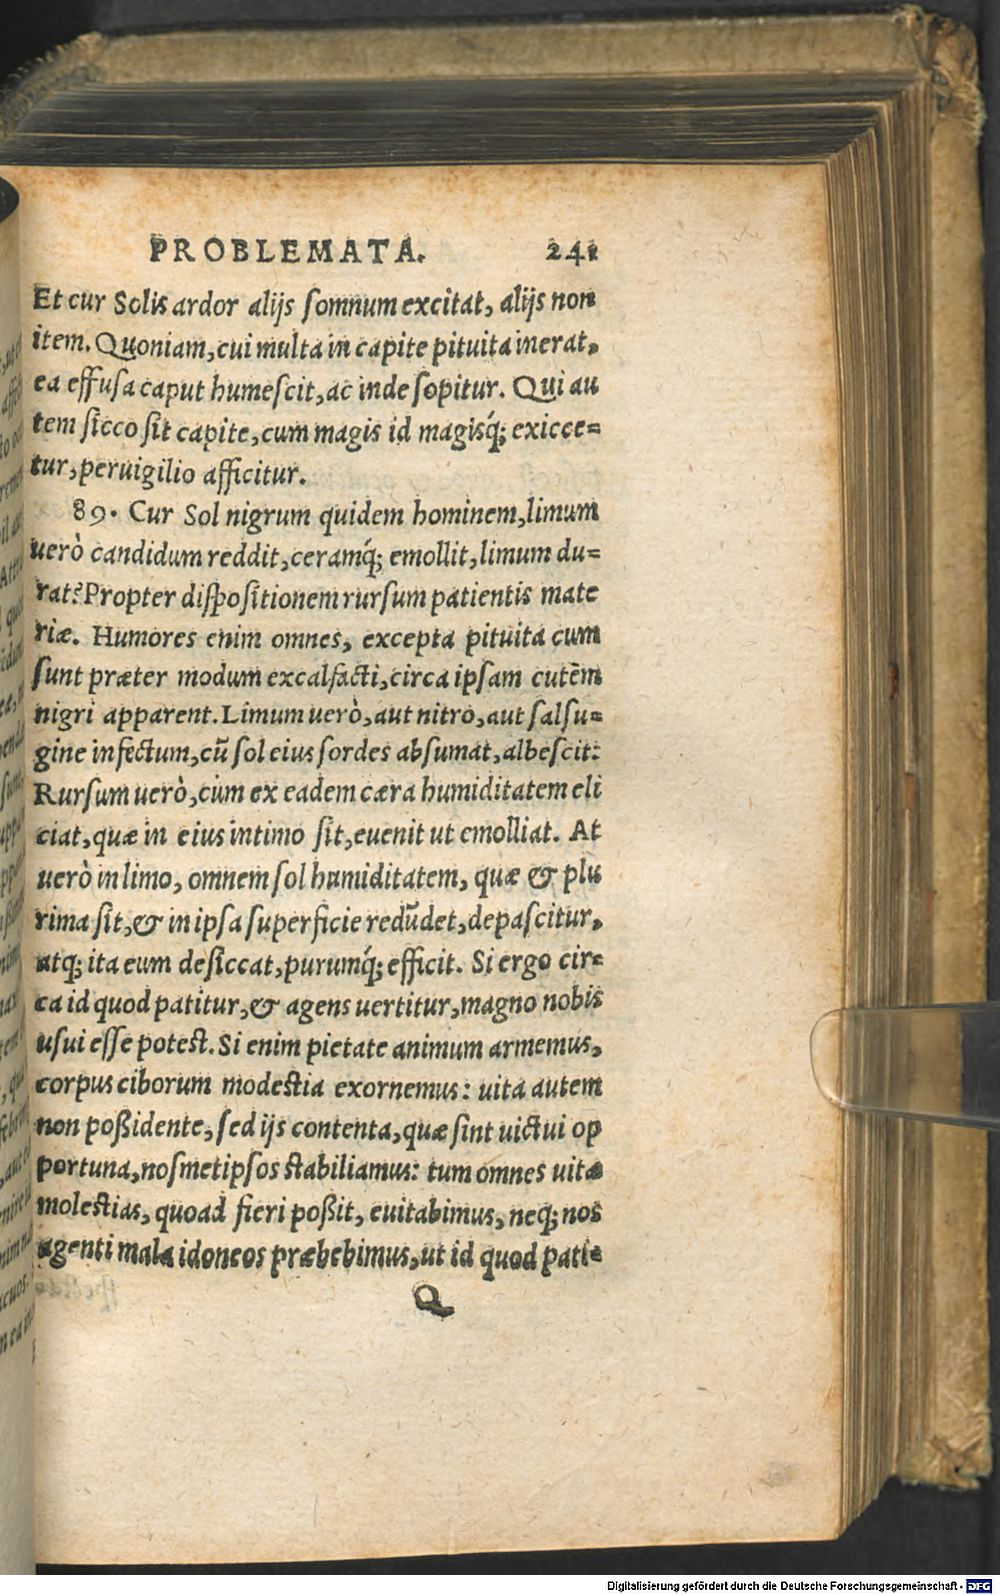 PROBLEMATA. 241
Et cur Solis ardor alijs somnum excitat, alijs non
item. Quoniam, cui multa in capite pituita inerat,
ea effusa caput humescit, ac inde sopitur. Qui au
tem sicco sit capite, cum magis id magisq́; exicce=
tur, peruigilio afficitur.
89. Cur Sol nigrum quidem hominem, limum
uerò candidum reddit, ceramq́; emollit, limum du=
rat? Propter dispositionem rursum patientis mate
riæ. Humores enim omnes, excepta pituita cum
sunt præter modum excalfacti, circa ipsam cutẽm
nigri apparent. Limum uerò, aut nitro, aut salsu=
gine infectum, cũ sol eius sordes absumat, albescit:
Rursum uerò, cùm ex eadem cæra humiditatem eli
ciat, quæ in eius intimo sit, euenit ut emolliat. At
uerò in limo, omnem sol humiditatem, quæ & plu
rima sit, & in ipsa superficie redũdet, depascitur,
atq; ita eum desiccat, purumq́; efficit. Si ergo cir=
ca id quod patitur, & agens uertitur, magno nobis
usui esse potest. Si enim pietate animum armemus,
corpus ciborum modestia exornemus: uita autem
non poßidente, sed ijs contenta, quæ sint uictui op
portuna, nosmetipsos stabiliamus: tum omnes uitæ
molestias, quoad fieri poßit, euitabimus, neq; nos
agenti mala idoneos præbebimus, ut id quod pati=
Q
Digitalisierung gefördert durch die Deutsche Forschungsgemeinschaft - DFG